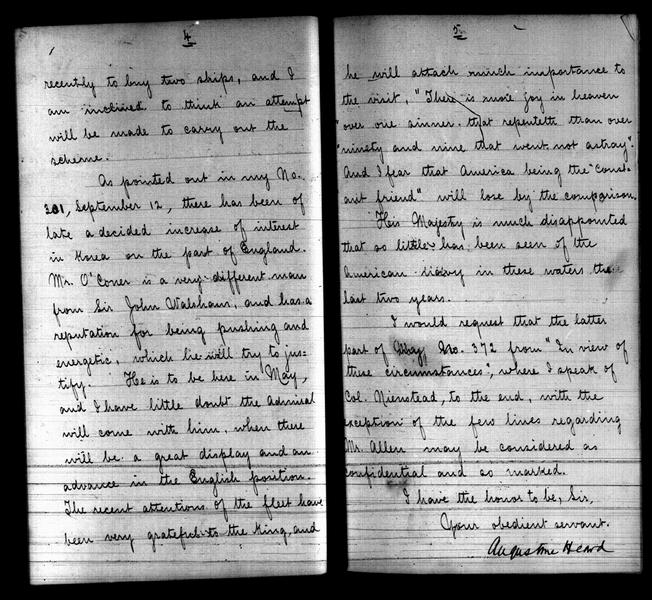 4
recently to buy two ships, and I
am inclined to think an attempt
will be made to carry out the
scheme.
As pointed out in my No.
301, September 12, there has been of
late a decided increase of interest
in Korea on the part of England.
Mr. O'Coner is a very different man
from Sir John Walsham, and has a
reputation for being pushing and
energetic, which he will try to jus-
tify. He is to be here in May,
and I have little doubt the Admiral
will come with him, when there
will be a great display and an
advance in the English position.
The recent attentions of the fleet have
been very grateful to the King, and
5
he will attach much importance to
the visit, "There is more joy in heaven
"over one sinner that repenteth than over
"ninety and nine that went not astray".
And I fear that America being the "Const-
ant friend" will lose by the comparison.
His Majesty is much disappointed
that so little has been seen of the
American navy in these waters the
last two years.
I would request that the latter
part of my No. 372 from "In view of
these circumstances", where I speak of
Col. Nienstead, to the end, with the
exception of the few lines regarding
Mr. Allen may be considered as
confidential and so marked.
I have the honor to be, Sir,
Your obedient servant.
Augustine Heard